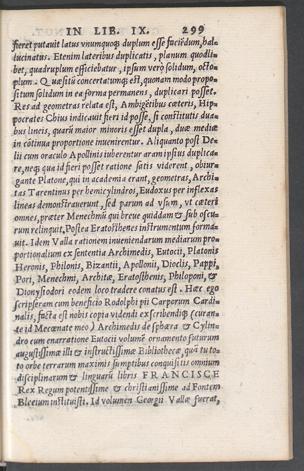 IN LIB. IX. 299
fieret putauit latus vnumquoq; duplum esse faciēdum, hal-
lucinatus. Etenim lateribus duplicatis, planum quodli-
bet, quadruplum efficiebatur, ipsum verò solidum, octo-
plum. Quæsitū concertatumq; est, quonam modo propo-
situm solidum in ea forma permanens, duplicari posset.
Res ad geometras relata est, Ambigētibus cæteris, Hip-
pocrates Chius indicauit fieri id posse, si constitutis dua-
bus lineis, quarū maior minoris esset dupla, duæ mediæ
in cōtinua proportione inuenirentur. Aliquanto pòst De
lij cum oraculo Apollinis iuberentur aram ipsius duplica-
re, neq; qua id fieri posset ratione satis viderent, obiur-
gante Platone, qui in academia erant, geometras, Archi-
tas Tarentinus per hemicylindros, Eudoxus per inflexas
lineas demonstrauerunt, sed parum ad vsum, vt cæteri
omnes, præter Menechmū qui breue quiddam & sub oscu-
rum relinquit, Postea Eratosthenes instrumentum forma-
uit. Idem Valla rationem inueniendarum mediarum pro-
portionalium ex sententia Archimedis, Eutocij, Platonis
Heronis, Philonis, Bizantij, Apollonij, Dioclis, Pappi,
Pori, Menechmi, Architæ, Eratosthenis, Philoponi, &
Dionysodori eodem loco tradere conatus est. Hæc ego
scripseram cum beneficio Rodolphi pij Carporum Cardi-
nalis, facta est nobis copia videndi exscribendiq; (curan-
te id Mecœnate meo) Archimedis de sphæra & Cylin-
dro cum enarratione Eutocij volumē ornamento futurum
augustissimæ illi & instructissimæ Bibliothecæ quā tu to-
to orbe terrarum maximis sumptibus conquisitis omnium
disciplinarum & linguarū libris FRANCISCE
Rex Regum potentissime & christianissime ad Fontem
Bleeum instituisti. Id volumen Georgij Vallæ fuerat,